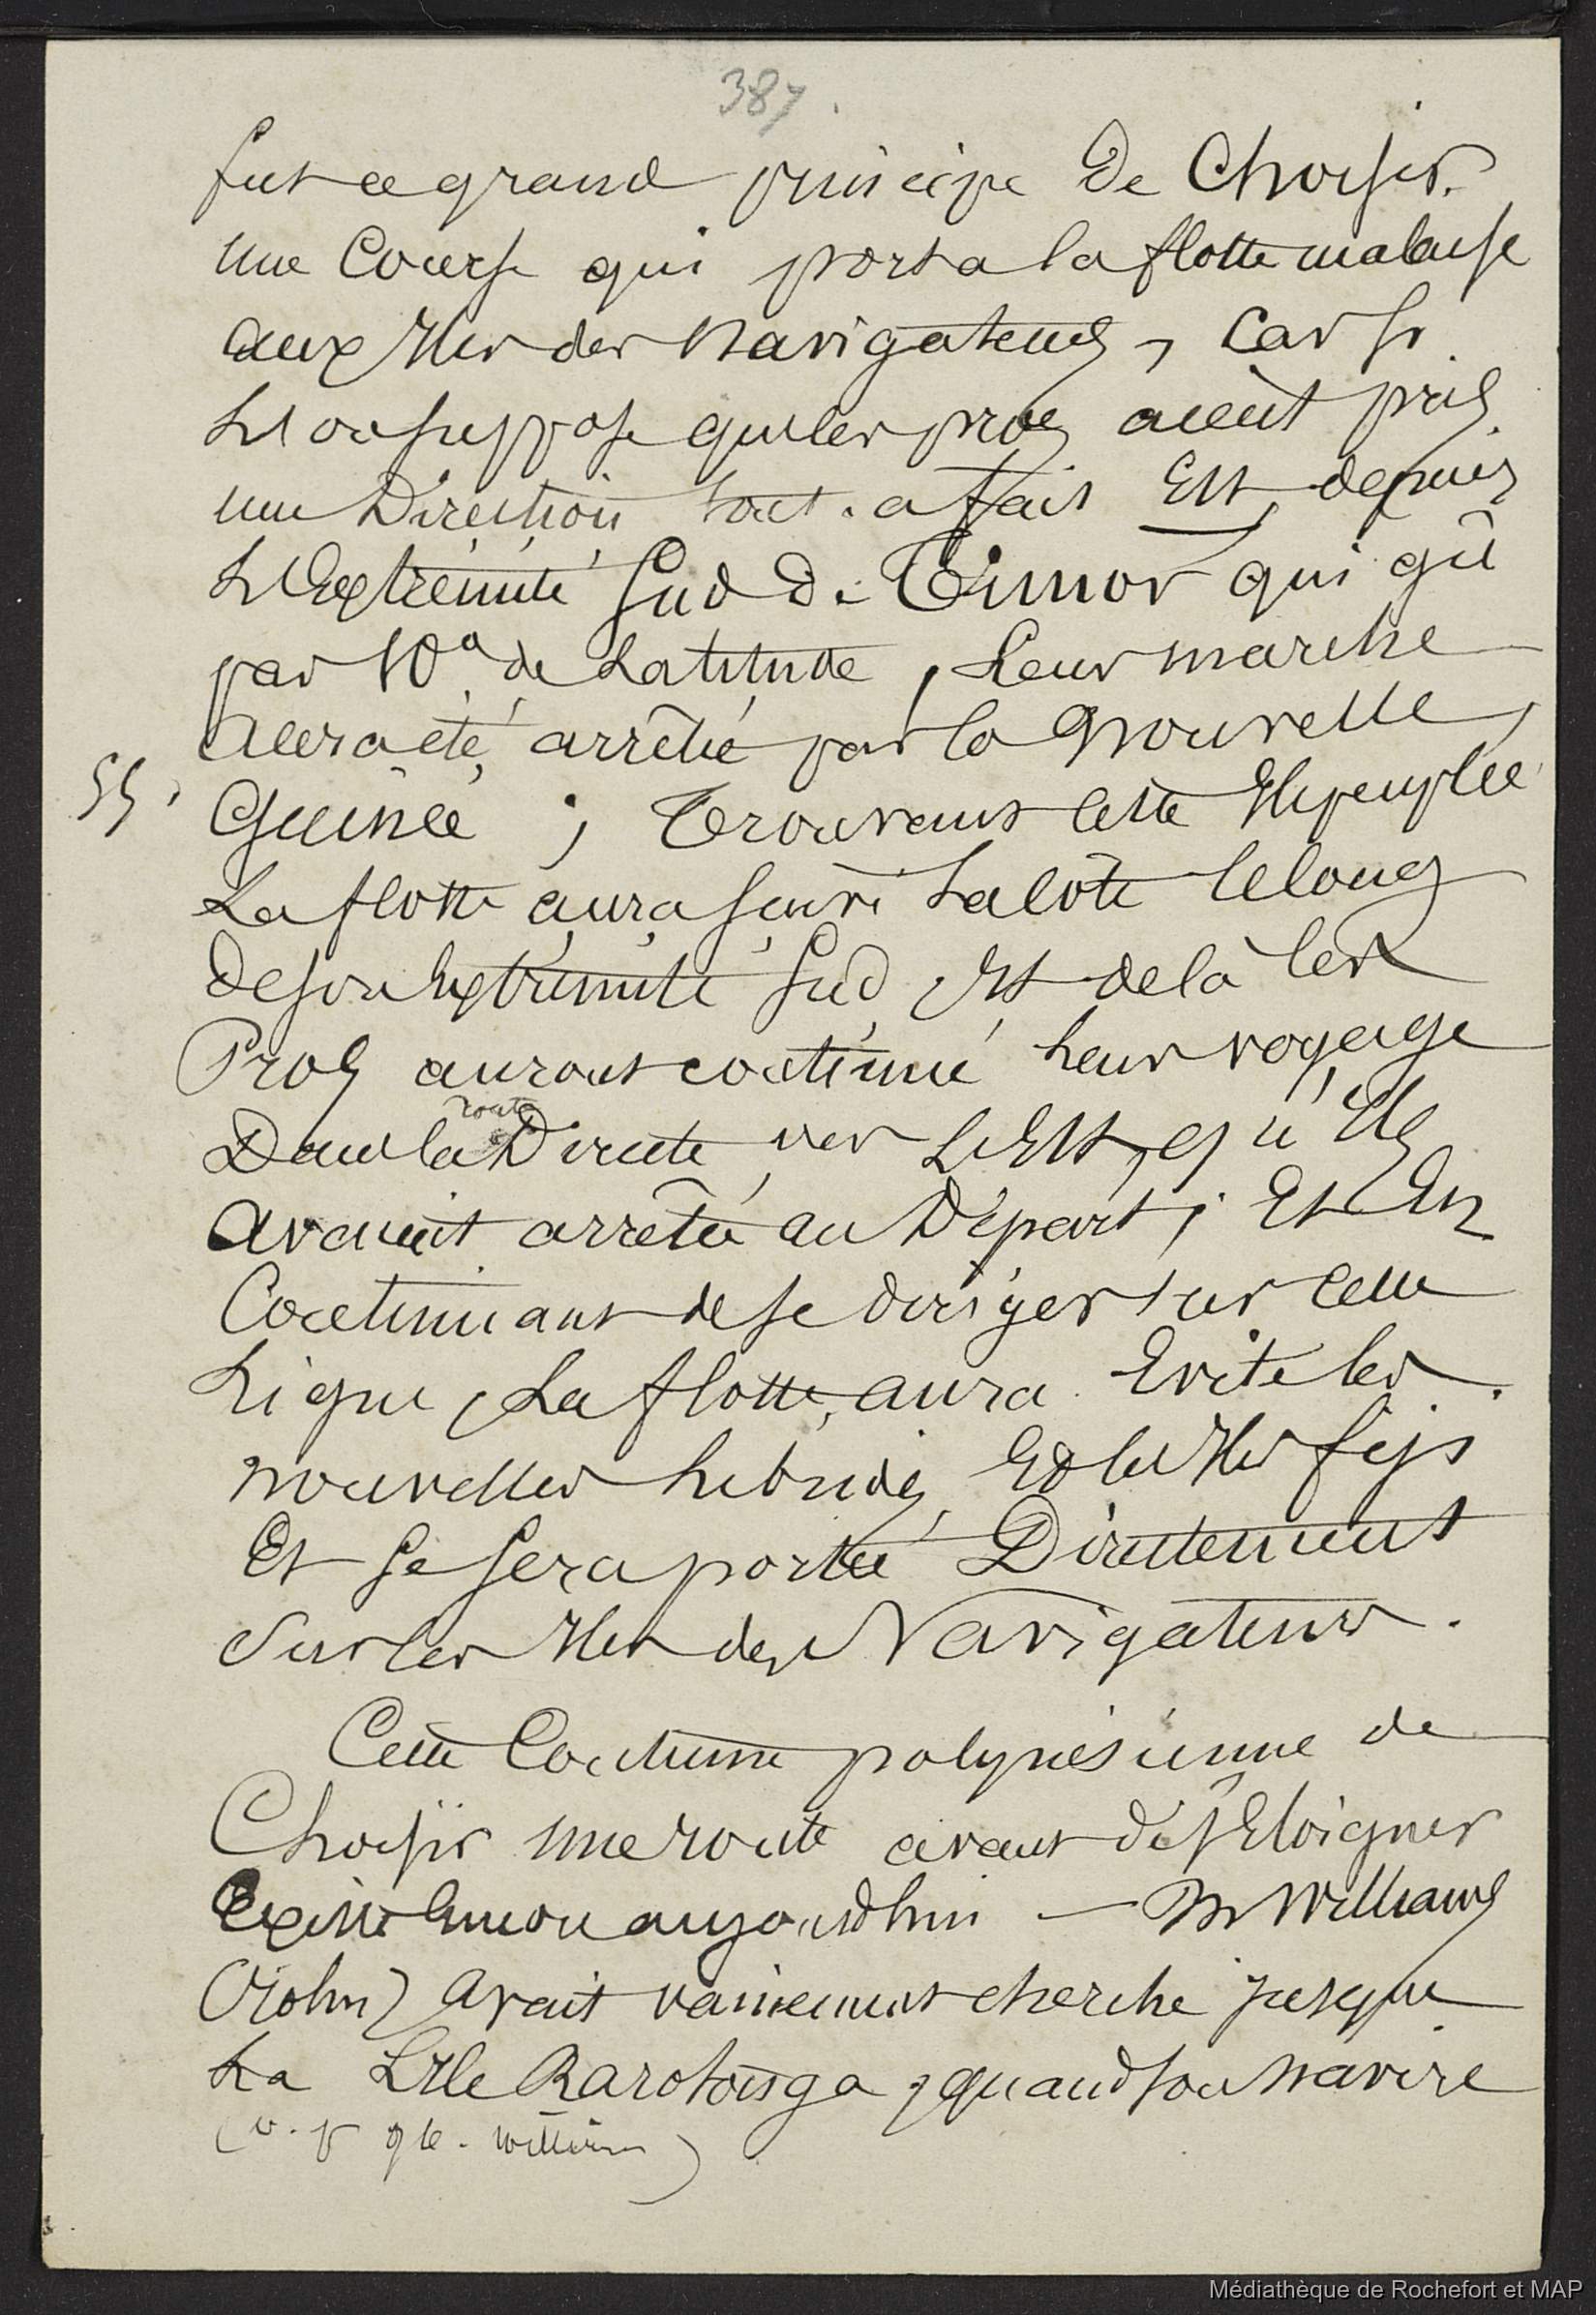 387.
fut ce grand principe de Choisir
une Course qui porta la flotte malaise
aux Iles des Navigateurs, Car si
L'on suppose que les pros aient pris
une Direction tout-a fait Est, depuis
L'Extrémité Sud de Timor qui gît
par 10° de Latitude, Leur marche
Aura été, arrêtée par la Nouvelle,
Guinée ; Trouvant cette Ile peuplée
La flotte aura suivi La Côte le long
de son Extrémité Sud, Et de là les
Pros auront continué Leur voyage
route
Dans la Directe vers L'Est, qu'ils
Avaient arrêtée au Départ ; Et En
Continuant de se diriger sur cette
Ligne, La flotte, aura Evité les
nouvelles hebrides, Et les Iles fijis
Et se sera portée Directement
Sur les Iles des Navigateurs.
Cette Coutume polynésienne de
Choisir une route avant de s'Eloigner
Existe Encore aujourdhui — Mr Williams
(John) Avait vainement cherché jusque
La L'Ile Rarotonga, quand son Navire
(v. p 96. William)